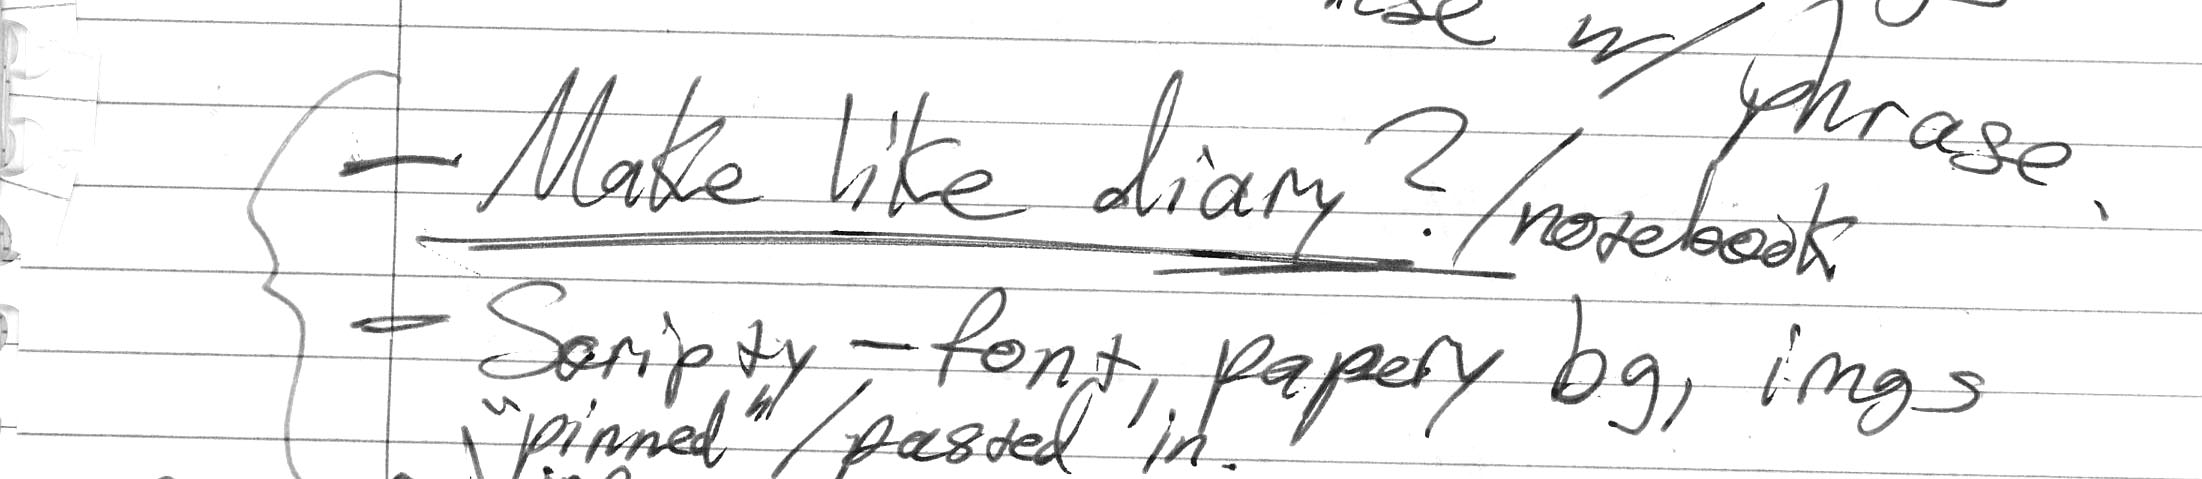 w/ phrase.
- Make like diary? /notebook
- Scripty-font, papery bg, imgs
"pinned"/pasted in.